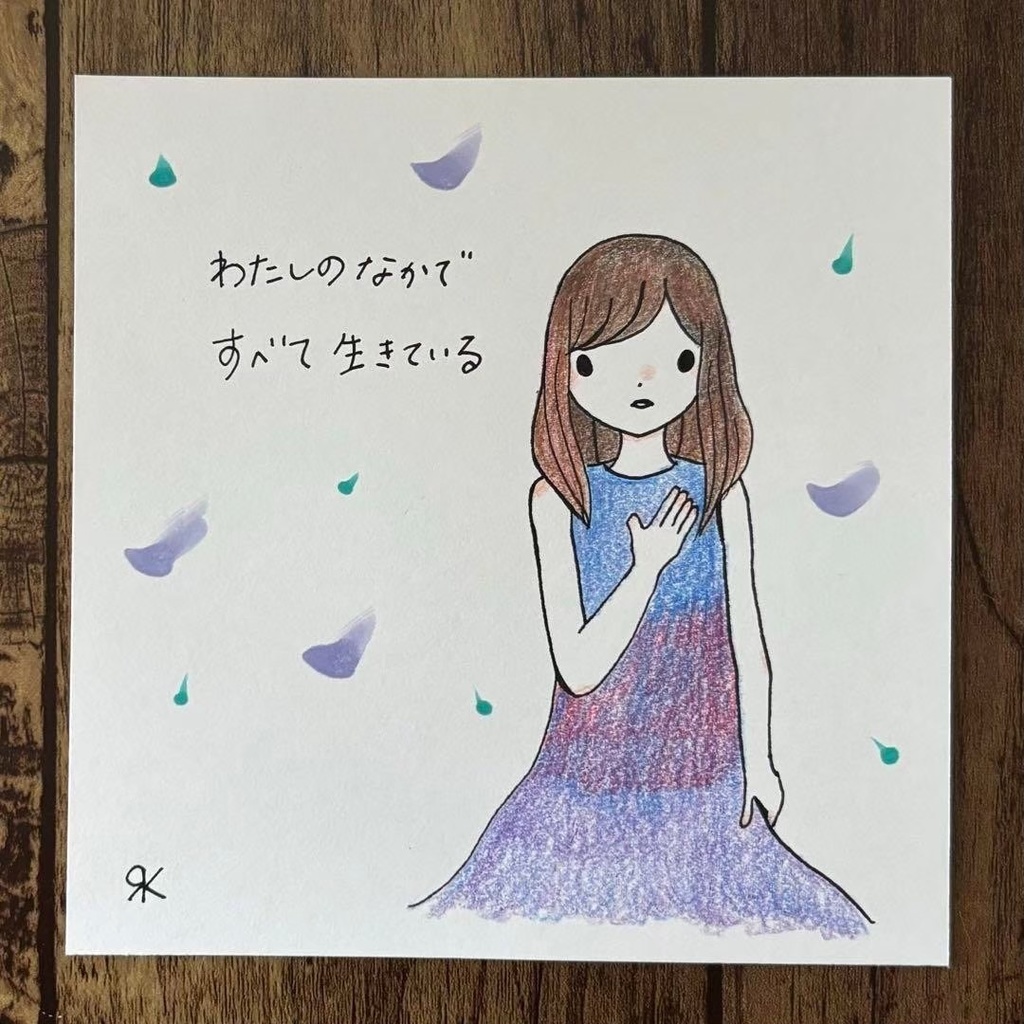 わたしのなかで
すべて生きている
RK